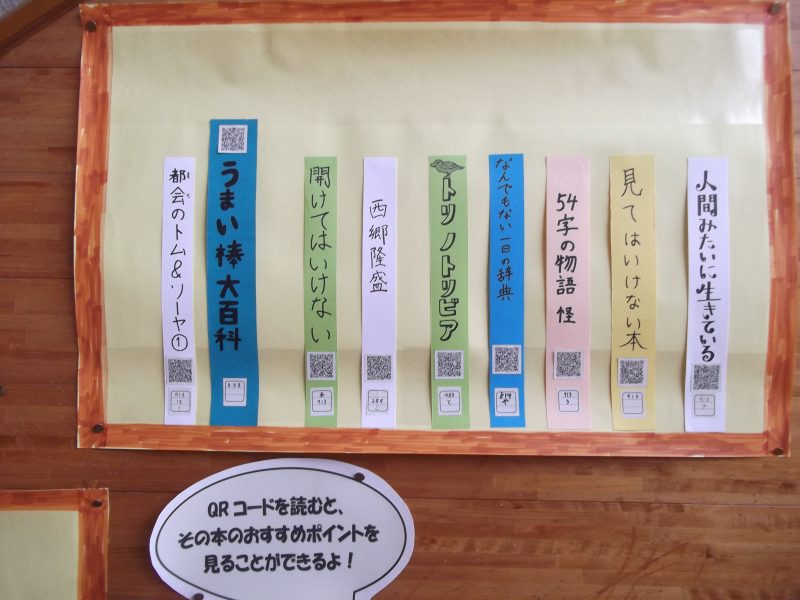 都会のトム&ソーヤ①
まち
913
は
1
うまい棒大百科
588
開けてはいけない
あ
913
西郷隆盛
289
トリノトリビア
488
と
なんでもない一日の辞典
814
や
54字の物語 怪
913
う
見てはいけない本
913
人間みたいに生きている
913
さ
QRコードを読むと、
その本のおすすめポイントを
見ることができるよ！